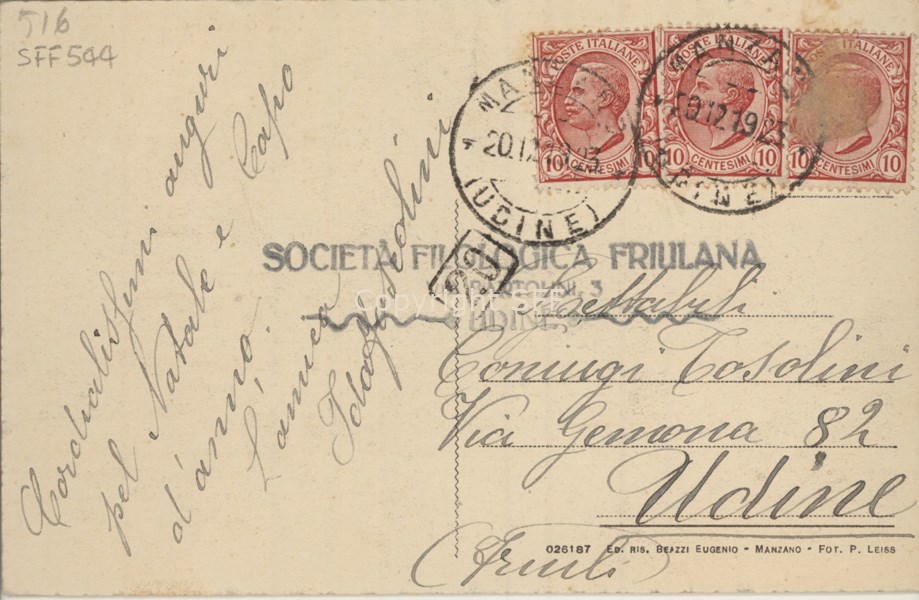 516
SFF544
POSTE ITALIANE
10 CENTESIMI 10
10 CENTESIMI 10
10 CENTESIMI 10
20.12.1923
(UDINE)
SOCIETÀ FILOLOGICA FRIULANA
BARTOLINI, 3
UDINE
Copyright SFF
Cordialissimi auguri
pel Natale e Capo
d'anno.
L'amica
Spettabili
Coniugi Tosolini
Via Gemona 82
Udine
(Friuli)
026187 ED. RIS. BEAZZI EUGENIO - MANZANO - FOT. P. LEISS